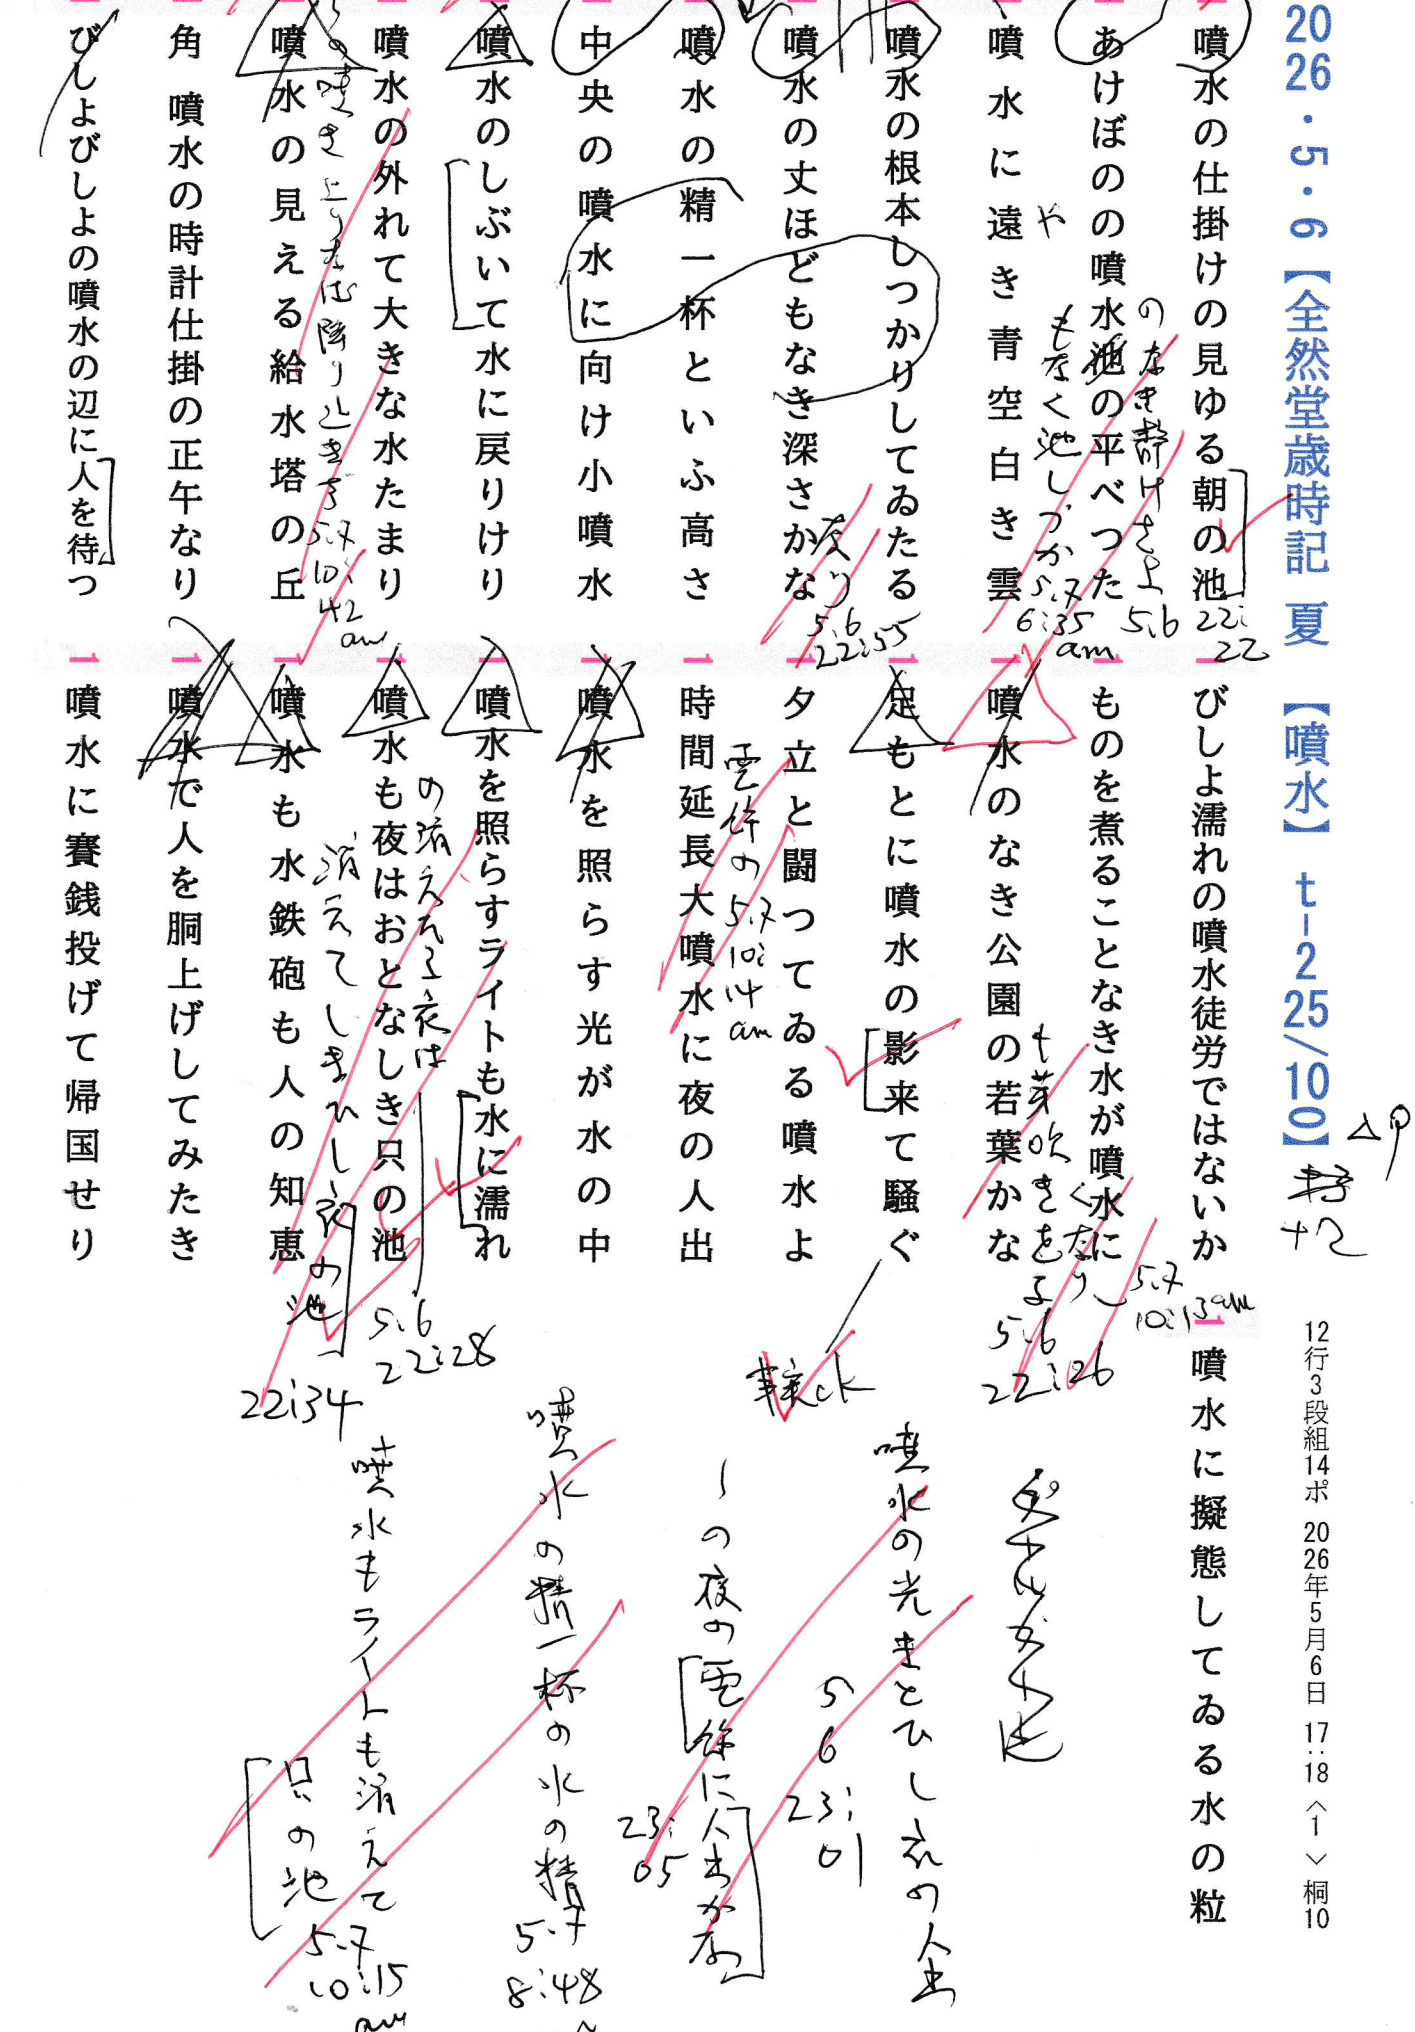 2026・5・6【全然堂歳時記 夏 【噴水】 t-2 25/100】
12行3段組14ポ 2026年5月6日 17:18 〈1〉 桐10
噴水の仕掛けの見ゆる朝の池
22:22
あけぼのの噴水池の平べつた
のなき静けさよ
5.6
もなく池しづか
5.7
6:35
am
噴水に遠き青空白き雲
や
噴水の根本しつかりしてゐたる
噴水の丈ほどもなき深さかな
5.6
22:55
噴水の精一杯といふ高さ
中央の噴水に向け小噴水
噴水のしぶいて水に戻りけり
噴水の外れて大きな水たまり
噴水の見える給水塔の丘
5.7
10:42
am
角 噴水の時計仕掛の正午なり
びしよびしよの噴水の辺に人を待つ
びしよ濡れの噴水徒労ではないか
ものを煮ることなき水が噴水に
くなり
5.7
10:13am
噴水のなき公園の若葉かな
も芽吹きをる
5.6
22:26
足もとに噴水の影来て騒ぐ
ck
夕立と闘つてゐる噴水よ
時間延長大噴水に夜の人出
雲行の
5.7
10:14
am
噴水を照らす光が水の中
噴水を照らすライトも水に濡れ
噴水も夜はおとなしき只の池
の消えたる夜は
5.6
22:28
消えてしまひし夜の池
22:34
噴水も水鉄砲も人の知恵
噴水で人を胴上げしてみたき
噴水に賽銭投げて帰国せり
噴水に擬態してゐる水の粒
噴水の光まとひし夜の人出
5
6
23:01
〜の夜の雲行に人出かな
23:05
噴水の精一杯の水の精
5.7
8:48
噴水もライトも消えて
只の池
5.7
10:15
am